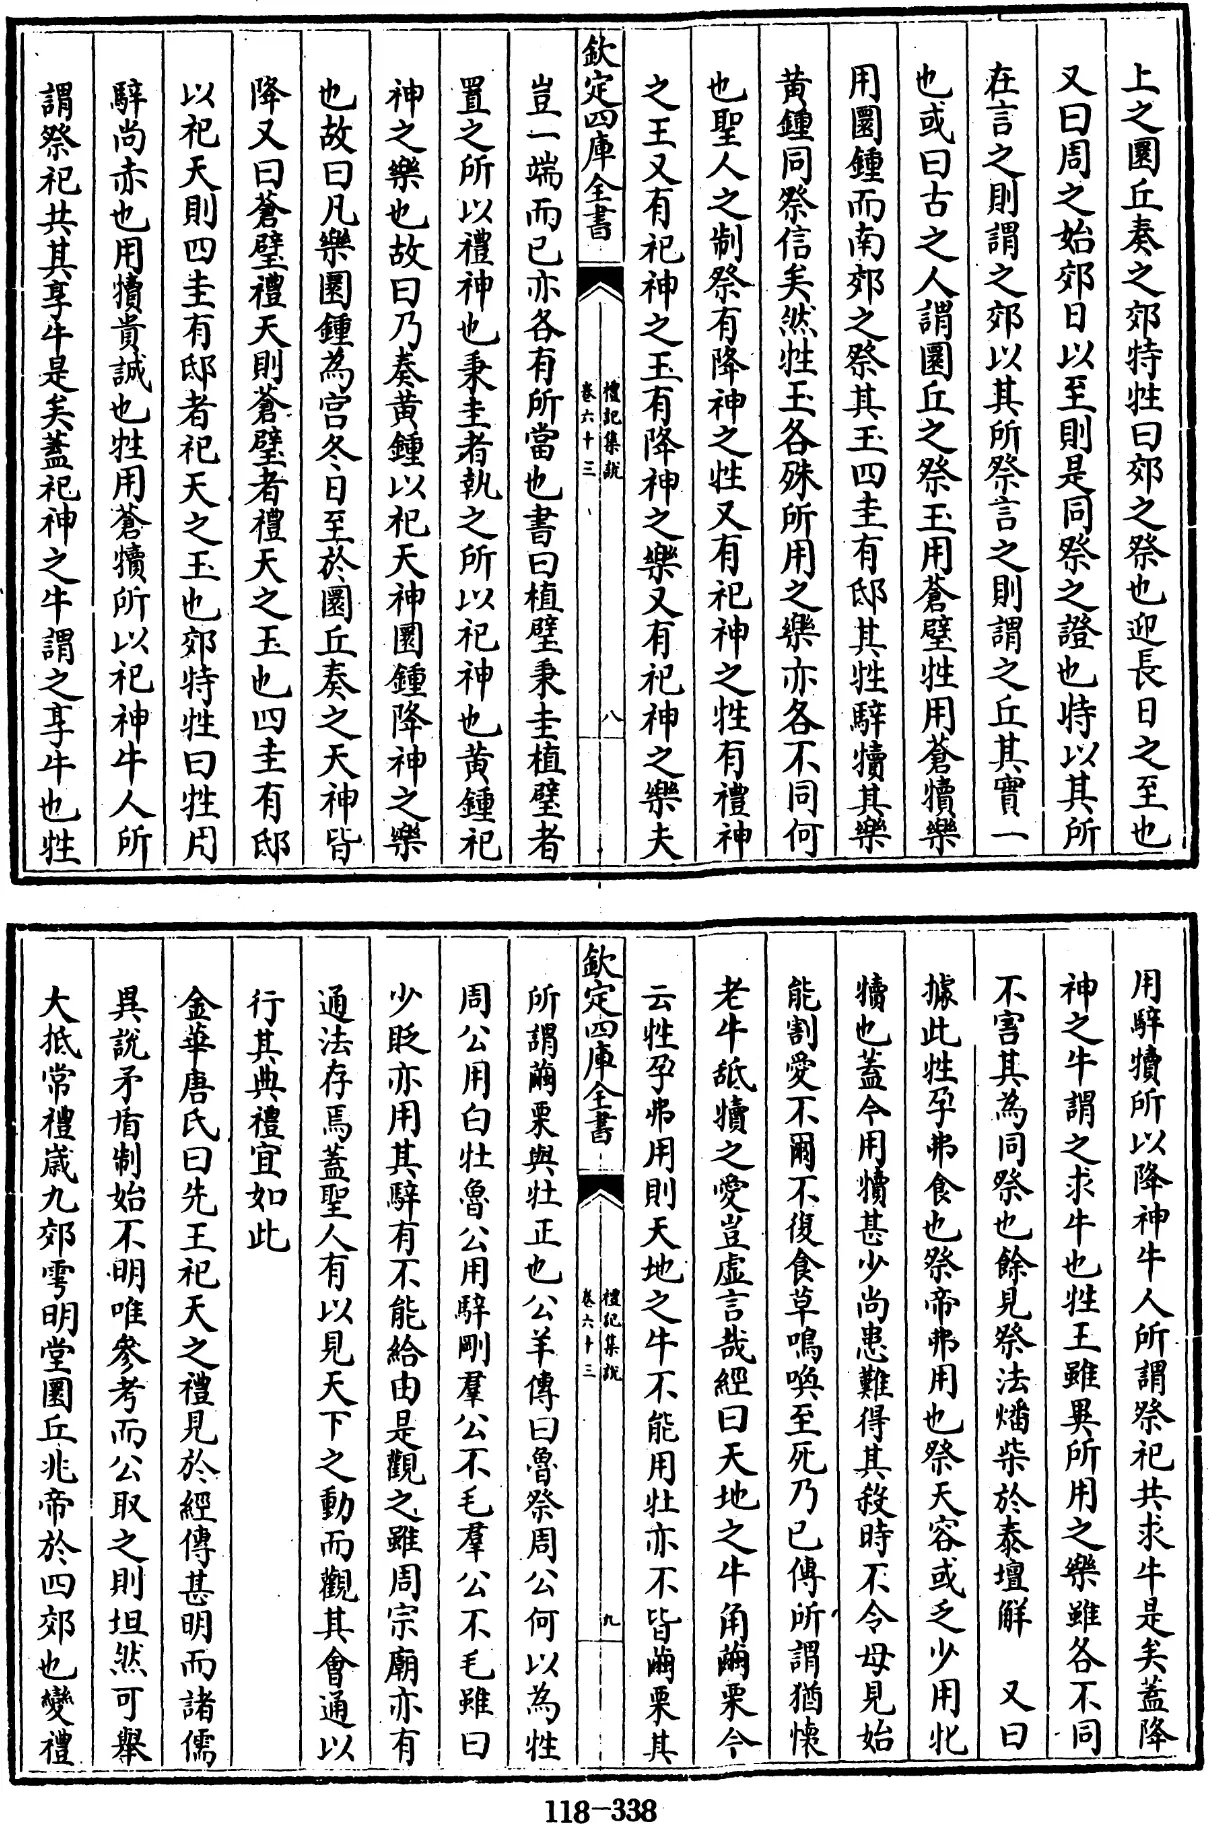 上之圜丘奏之郊特牲曰郊之祭也迎長日之至也
又曰周之始郊日以至則是同祭之證也特以其所
在言之則謂之郊以其所祭言之則謂之丘其實一
也或曰古之人謂圜丘之祭玉用蒼璧牲用蒼犢樂
用圜鍾而南郊之祭其玉四圭有邸其牲騂犢其樂
黄鍾同祭信矣然牲玉各殊所用之樂亦各不同何
也聖人之制祭有降神之牲又有祀神之牲有禮神
之玉又有祀神之玉有降神之樂又有祀神之樂夫
欽定四庫全書
禮記集說
卷六十三
八
豈一端而已亦各有所當也書曰植璧秉圭植璧者
置之所以禮神也秉圭者執之所以祀神也黄鍾祀
神之樂也故曰乃奏黄鍾以祀天神圜鍾降神之樂
也故曰凡樂圜鍾為宫冬日至於圜丘奏之天神皆
降又曰蒼璧禮天則蒼璧者禮天之玉也四圭有邸
以祀天則四圭有邸者祀天之玉也郊特牲曰牲用
騂尚赤也用犢貴誠也牲用蒼犢所以祀神牛人所
謂祭祀共其享牛是矣蓋祀神之牛謂之享牛也牲
用騂犢所以降神牛人所謂祭祀共求牛是矣蓋降
神之牛謂之求牛也牲玉雖異所用之樂雖各不同
不害其為同祭也餘見祭法燔柴於泰壇解 又曰
據此牲孕弗食也祭帝弗用也祭天容或乏少用牝
犢也蓋今用犢甚少尚患難得其殺時不令母見始
能割愛不爾不復食草鳴喚至死乃已傳所謂猶懷
老牛舐犢之愛豈虛言哉經曰天地之牛角繭栗今
云牲孕弗用則天地之牛不能用牡亦不皆繭栗其
欽定四庫全書
禮記集說
卷六十三
九
所謂繭栗與牡正也公羊傳曰魯祭周公何以為牲
周公用白牡魯公用騂剛羣公不毛羣公不毛雖曰
少貶亦用其騂有不能給由是觀之雖周宗廟亦有
通法存焉蓋聖人有以見天下之動而觀其會通以
行其典禮宜如此
金華唐氏曰先王祀天之禮見於經傳甚明而諸儒
異說矛盾制始不明唯參考而公取之則坦然可舉
大抵常禮歲九郊雩明堂圜丘兆帝於四郊也變禮
118-338